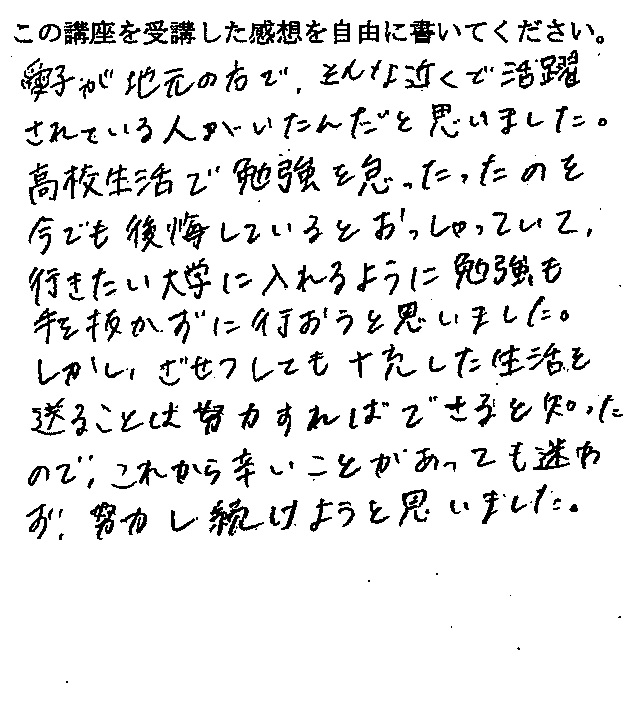 この講座を受講した感想を自由に書いてください。
子が地元の方で、そんな近くで活躍
されている人がいたんだと思いました。
高校生活で勉強を怠ったったのを
今でも後悔しているとおっしゃっていて、
行きたい大学に入れるように勉強も
手を抜かずに行おうと思いました。
しかし、ざせつしても十充した生活を
送ることは努力すればできると知った
ので、これから辛いことがあっても迷わ
ず、努力し続けようと思いました。